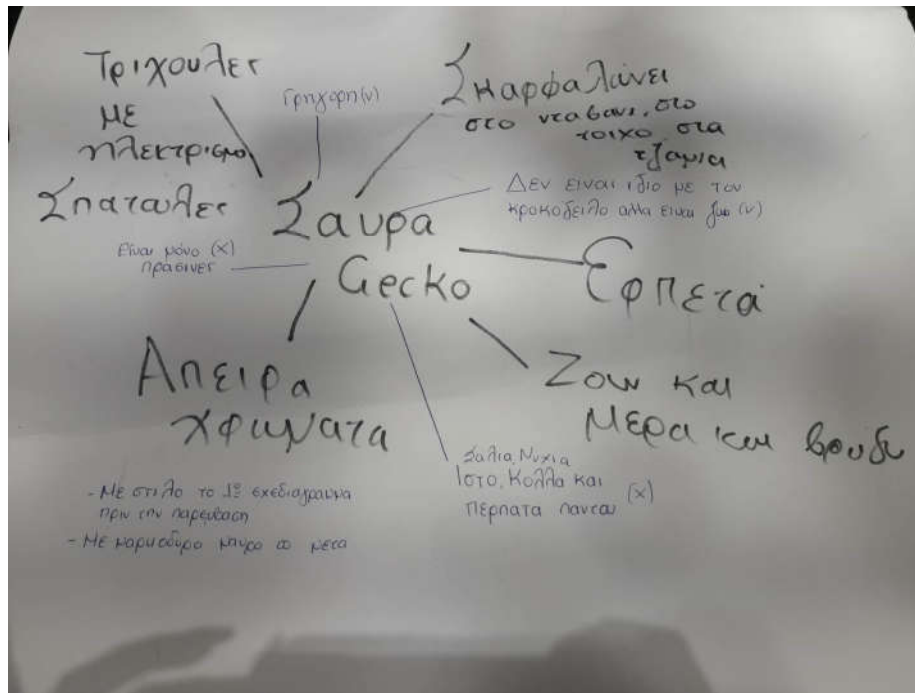 Τριχουλες
με
ηλεκτρισμο
Σπατουλες
Γρηγορη (ν)
Σκαρφαλωνει
στο νταβανι, στο
τοιχο, στα
τζαμια
Σαυρα
Gecko
Δεν ειναι ιδιο με τον
κροκοδειλο αλλα ειναι ζωο (ν)
Είναι μόνο (x)
πρασινες
Ερπετά
Απειρα
χρωματα
Ζουν και
Μερα και βραδυ
Σαλια, Νυχια
Ιστο, Κολλα και
περπατα παντου (x)
- Με στιλο το 1ο σχεδιαγραμμα
πριν την παρεμβαση
- Με μαρκαδορο μαυρο το μετα